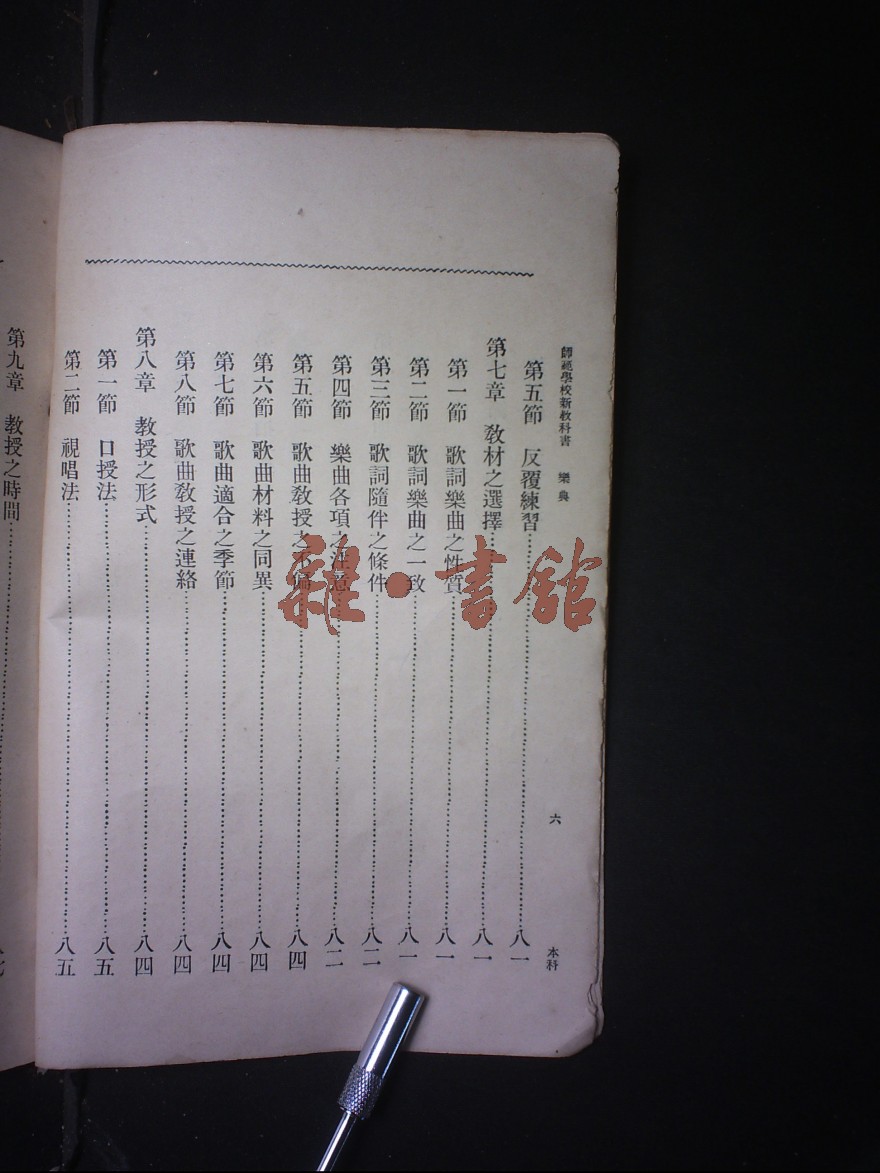 師範學校新教科書 樂典 六 本科
第五節 反覆練習 八一
第七章 教材之選擇 八一
第一節 歌詞樂曲之性質 八一
第二節 歌詞樂曲之一致 八一
第三節 歌詞隨伴之條件 八二
第四節 樂曲各項之注意 八二
第五節 歌曲教授之 八四
第六節 歌曲材料之同異 八四
第七節 歌曲適合之季節 八四
第八節 歌曲教授之連絡 八四
第八章 教授之形式 八四
第一節 口授法 八五
第二節 視唱法 八五
第九章 教授之時間
雜·書館